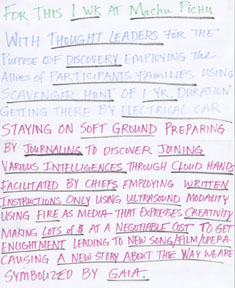 FOR THIS 1 WK AT MACHU PICHU
WITH THOUGHT LEADERS FOR THE
PURPOSE OF DISCOVERY EMPLOYING THE
ALLIES OF PARTICIPANTS FAMILIES USING
SCAVENGER HUNT OF 1 YR. DURATION
GETTING THERE BY ELECTRICAL CAR
STAYING ON SOFT GROUND PREPARING
BY JOURNALING TO DISCOVER JOINING
VARIOUS INTELLIGENCES THROUGH CLOUD HANDS
FACILITATED BY CHIEFS EMPLOYING WRITTEN
INSTRUCTIONS ONLY USING ULTRASOUND MODALITY
USING FIRE AS MEDIA THAT EXPRESSES CREATIVITY
MAKING LOTS OF $ AT A NEGOTIABLE COST TO GET
ENLIGHTMENT LEADING TO NEW SONG/FILM/OPERA
CAUSING A NEW STORY ABOUT THE WAY WE ARE
SYMBOLIZED BY GAIA.